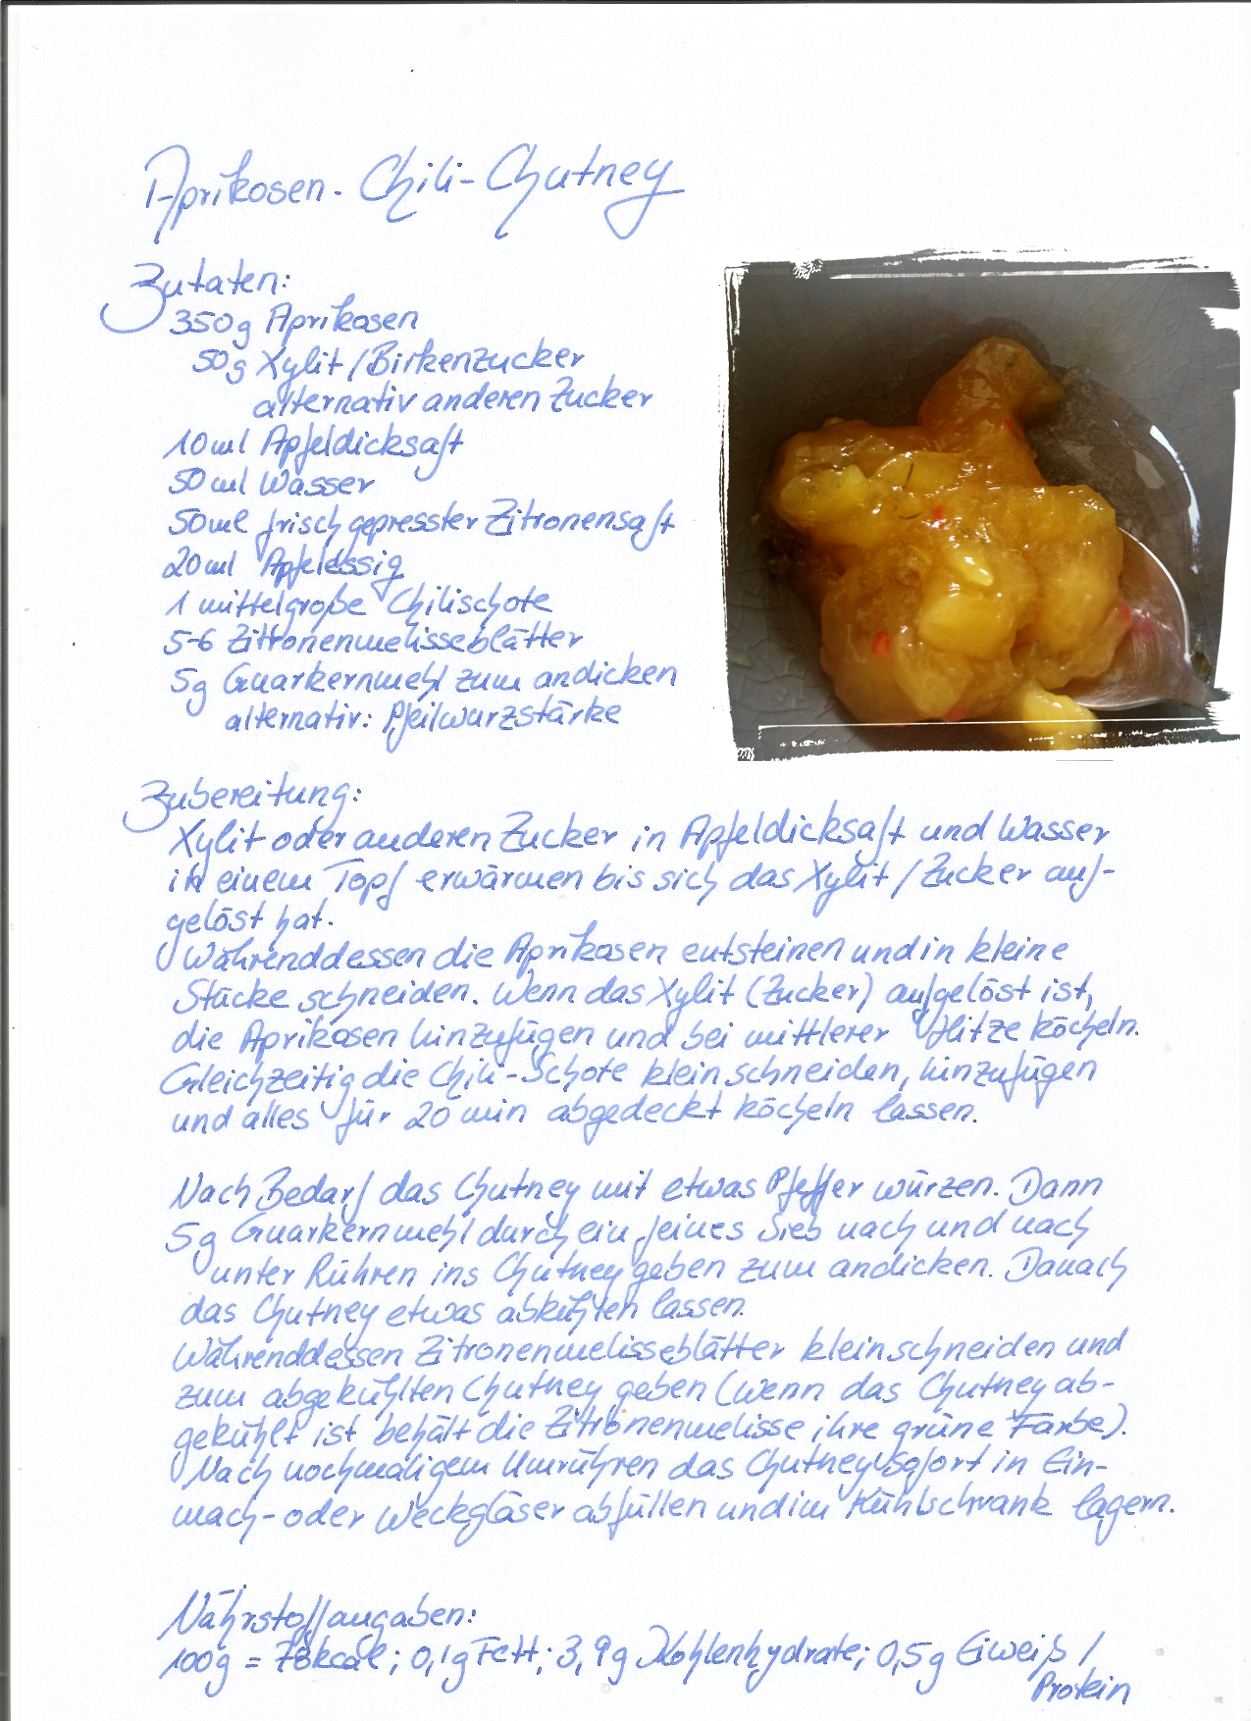 Aprikosen-Chili-Chutney
Zutaten:
350g Aprikosen
50g Xylit/Birkenzucker
alternativ anderen Zucker
10ml Apfeldicksaft
50ml Wasser
50ml frisch gepresster Zitronensaft
20ml Apfelessig
1 mittelgroße Chilischote
5-6 Zitronenmelisseblätter
5g Guarkernmehl zum andicken
alternativ: Pfeilwurzstärke
Zubereitung:
Xylit oder anderen Zucker in Apfeldicksaft und Wasser
in einem Topf erwärmen bis sich das Xylit/Zucker auf-
gelöst hat.
Währenddessen die Aprikosen entsteinen und in kleine
Stücke schneiden. Wenn das Xylit (Zucker) aufgelöst ist,
die Aprikosen hinzufügen und bei mittlerer Hitze köcheln.
Gleichzeitig die Chili-Schote klein schneiden, hinzufügen
und alles für 20 min abgedeckt köcheln lassen.
Nach Bedarf das Chutney mit etwas Pfeffer würzen. Dann
5g Guarkernmehl durch ein feines Sieb nach und nach
unter Rühren ins Chutney geben zum andicken. Danach
das Chutney etwas abkühlen lassen.
Währenddessen Zitronenmelisseblätter kleinschneiden und
zum abgekühlten Chutney geben (wenn das Chutney ab-
gekühlt ist behält die Zitronenmelisse ihre grüne Farbe).
Nach nochmaligem Umrühren das Chutney sofort in Ein-
mach- oder Weckgläser abfüllen und im Kühlschrank lagern.
Nährstoffangaben:
100g = 78kcal; 0,1g Fett; 3,9g Kohlenhydrate; 0,5g Eiweiß/
Protein